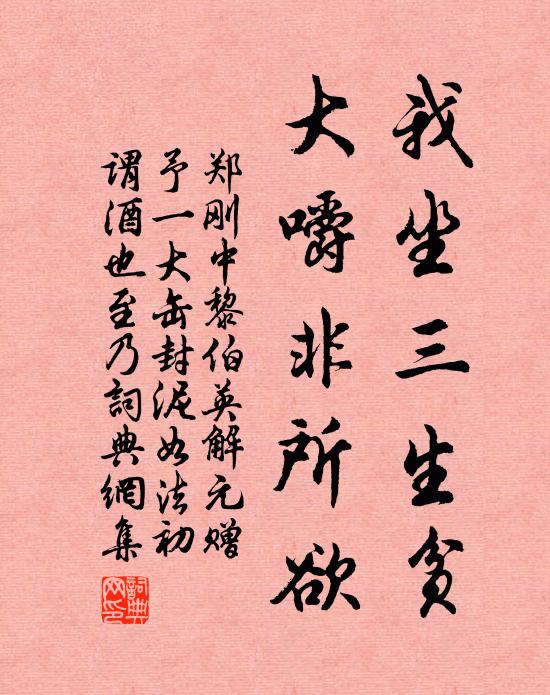 我坐三生贫
大嚼非所欲
郑刚中黎伯英解元赠
予一大缶封泥如法初
谓酒也至乃詞典網集
詞典网印